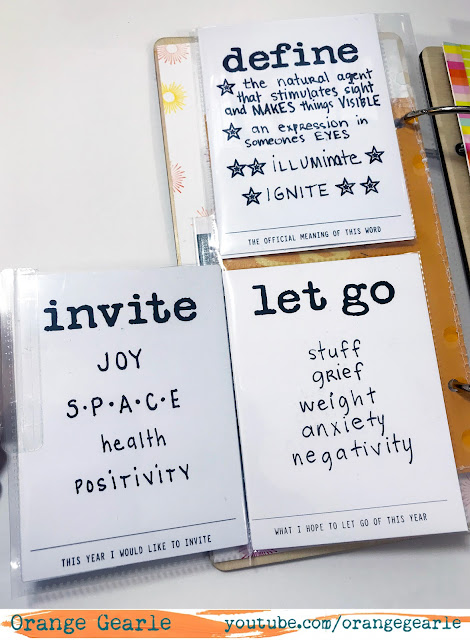 define
the natural agent
that stimulates sight
and MAKES things VISIBLE
an expression in
someones EYES
illuminate
IGNITE
THE OFFICIAL MEANING OF THIS WORD
invite
JOY
S•P•A•C•E
health
POSITIVITY
THIS YEAR I WOULD LIKE TO INVITE
let go
stuff
grief
weight
anxiety
negativity
WHAT I HOPE TO LET GO OF THIS YEAR
Orange Gearle youtube.com/orangegearle